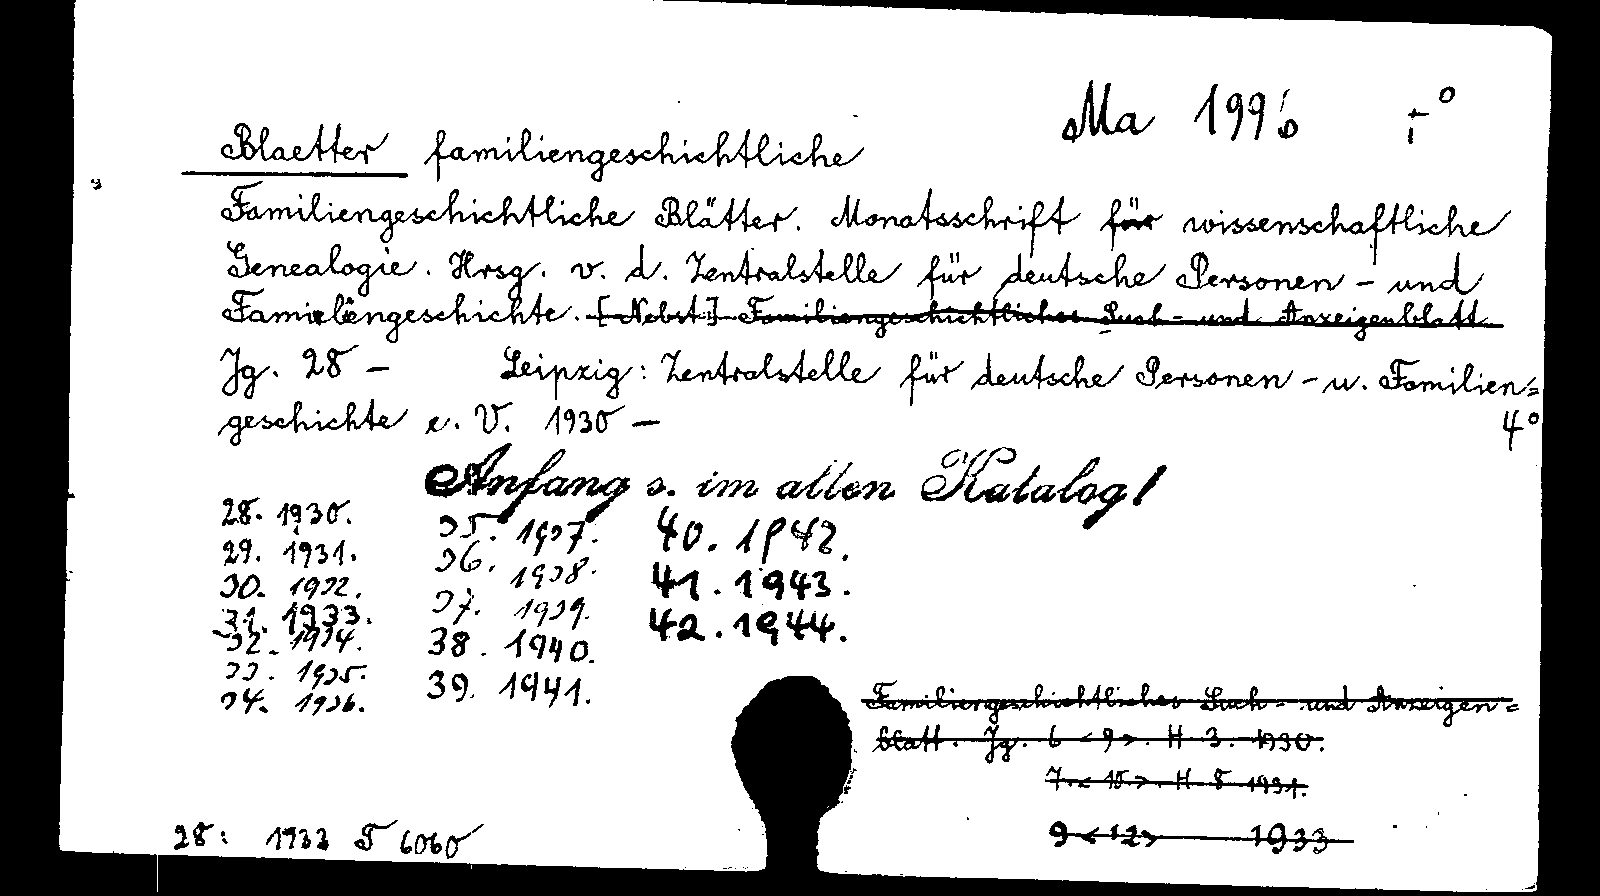 Ma 1996 4°
Blaetter familiengeschichtliche
Familiengeschichtliche Blätter. Monatsschrift für wissenschaftliche
Genealogie. Hrsg. v. d. Zentralstelle für deutsche Personen- und
Familiengeschichte. [Nebst] Familiengeschichtliches Such- und Anzeigenblatt
Jg. 28 – Leipzig: Zentralstelle für deutsche Personen- u. Familien=
geschichte e. V. 1930 – 4°
Anfang s. im alten Katalog!
28. 1930.
29. 1931.
30. 1932.
31. 1933.
32. 1934.
33. 1935.
34. 1936.
35. 1937.
36. 1938.
37. 1939.
38. 1940.
39. 1941.
40. 1942.
41. 1943.
42. 1944.
Familiengeschichtliches Such- und Anzeigen=
blatt. Jg. 6 <9>. H 3. 1930.
7. <10>. H 8 1931.
9 <12> 1933
28: 1933 T 6060